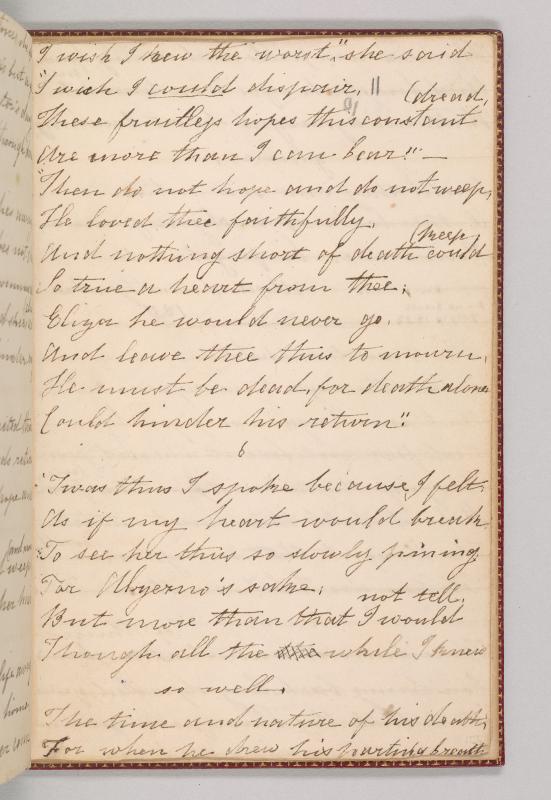 I wish I knew the worst," she said
"I wish I could despair. ||
(dread,
These fruitless hopes this constant
Are more than I can bear!" —
"Then do not hope and do not weep,
He loved thee faithfully,
(keep
And nothing short of death could
So true a heart from thee;
Eliza he would never go.
And leave thee thus to mourn,
He must be dead, for death alone
Could hinder his return."
6
'Twas thus I spoke because I felt
As if my heart would break
To see her thus so slowly pining
For Alzerno's sake;
not tell,
But more than that I would
Though all the while I knew
so well.
The time and nature of his death,
For when he drew his parting breath